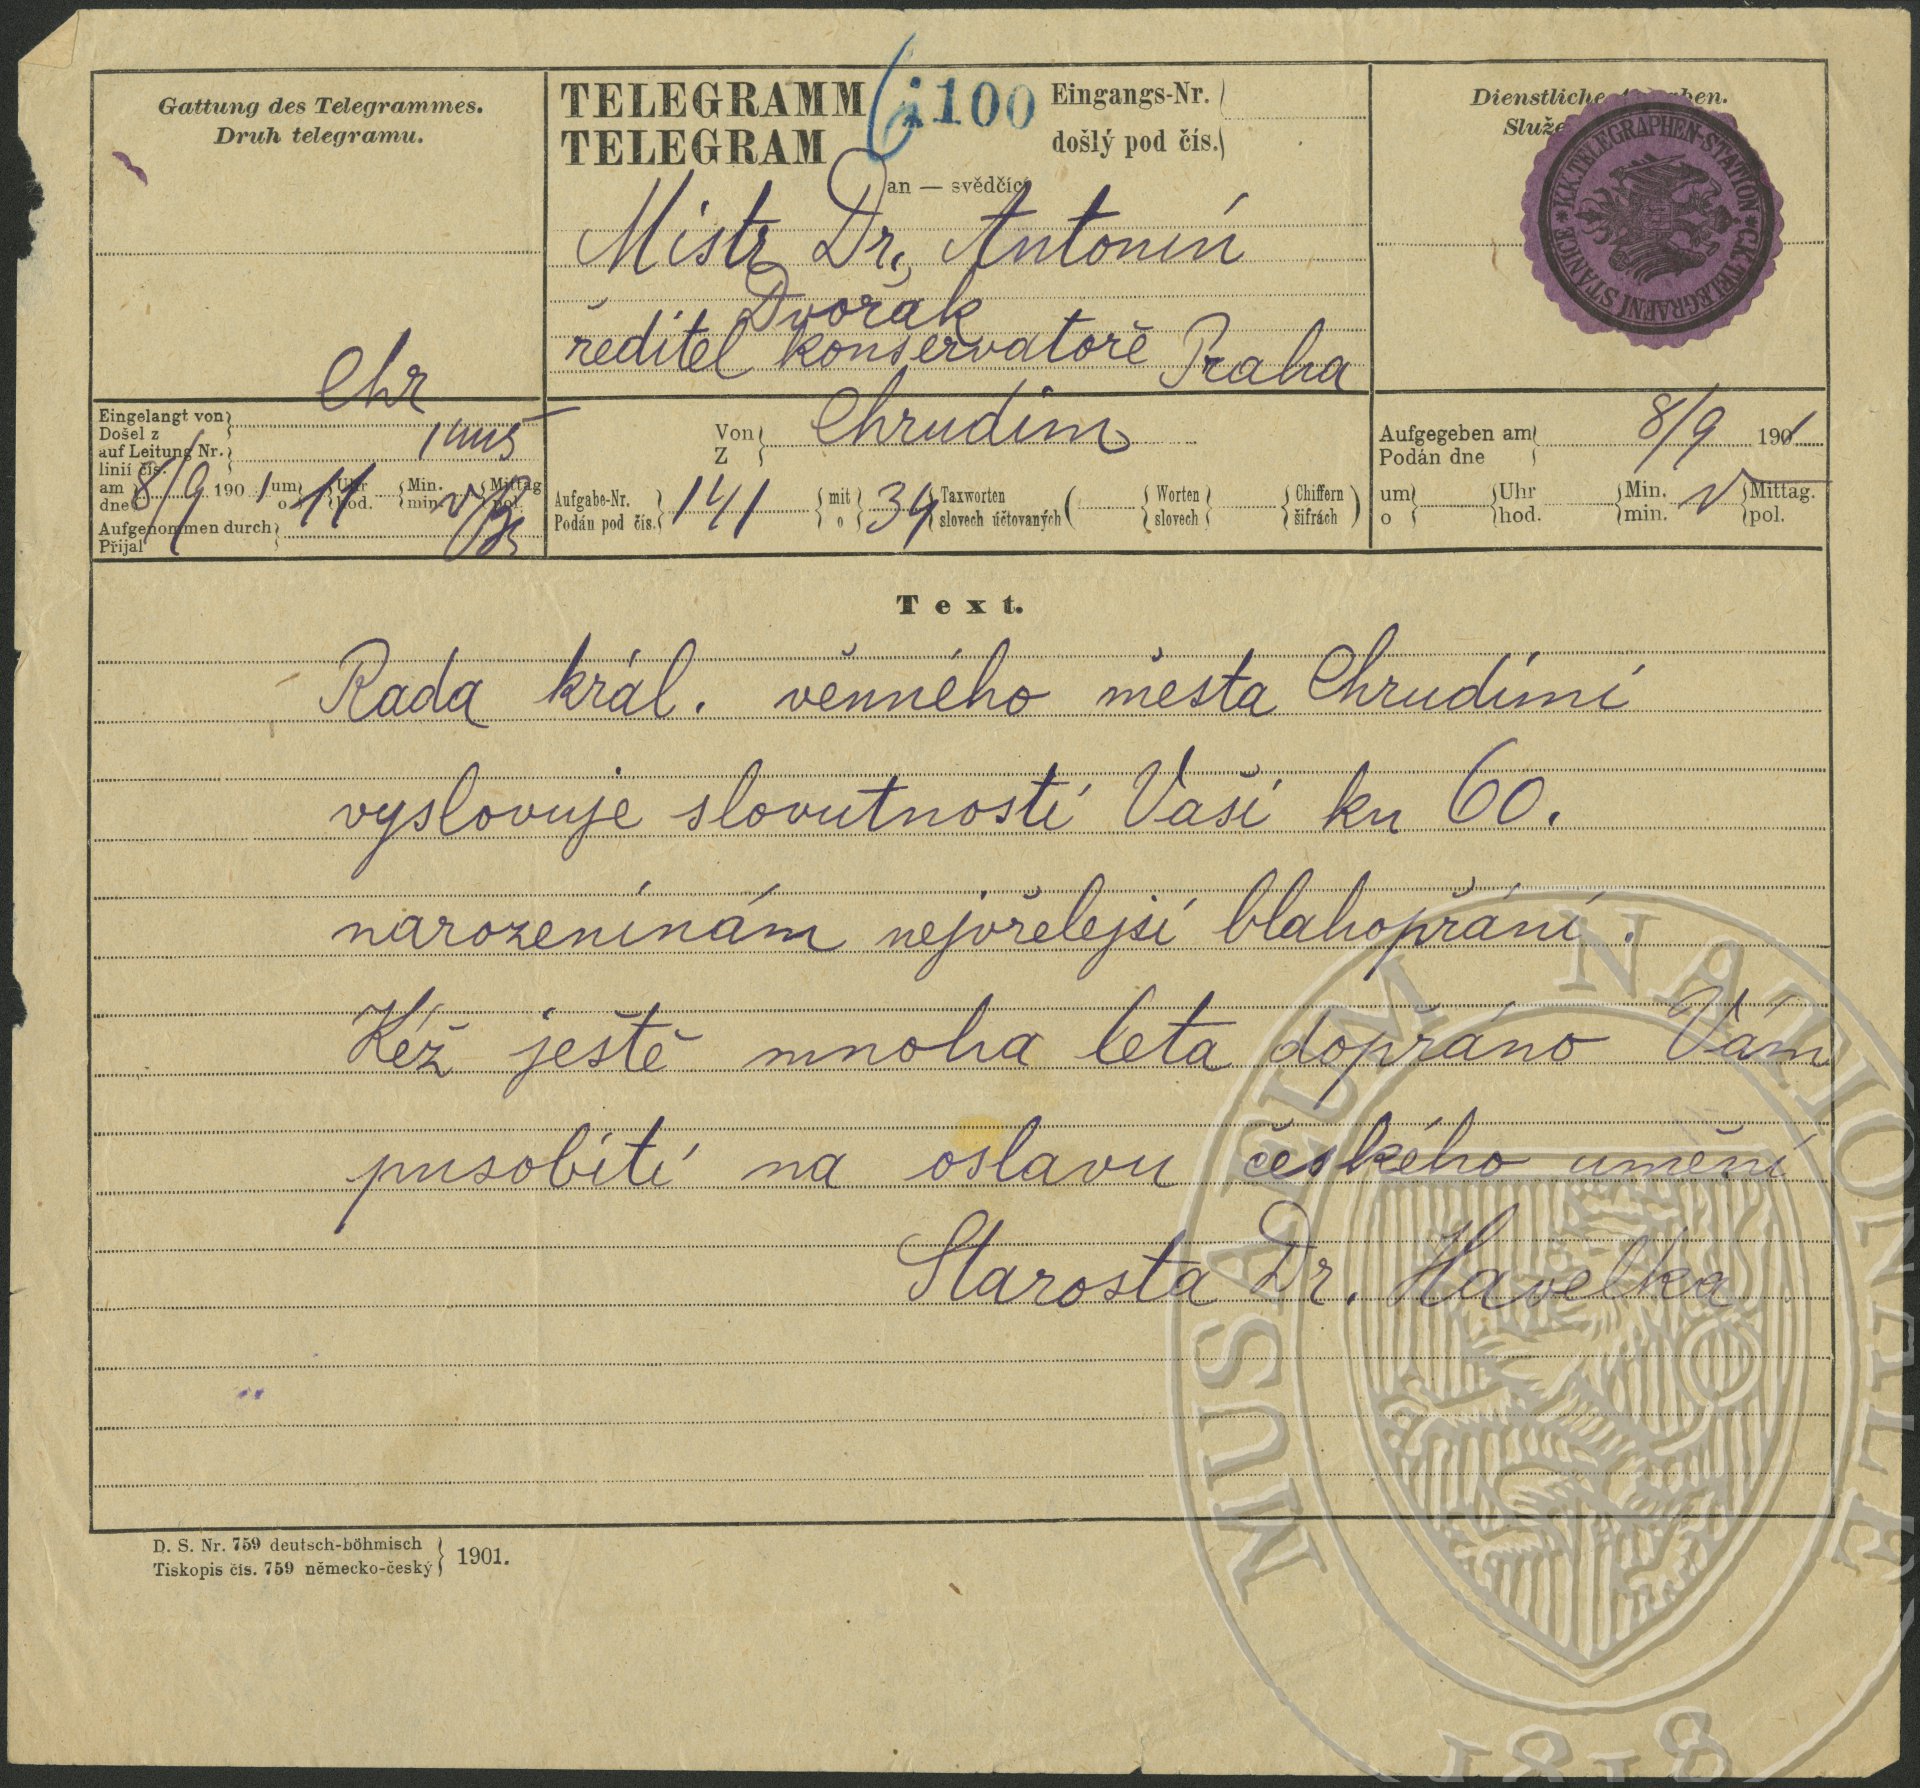 Gattung des Telegrammes.
Druh telegramu.
TELEGRAMM
TELEGRAM
100
Eingangs-Nr.
došlý pod čís.
an — svědčící
Dienstliche
Služe
K.K. TELEGRAPHEN-STATION * C.K. TELEGRAFNÍ STANICE *
Mistr Dr. Antonín
Dvořák
ředitel konservatoře Praha
Chr
Eingelangt von
Došel z
auf Leitung Nr.
linií čís.
am 8/9 190 1 um 11 Uhr Min. Mittag
dne o hod. min. v pol.
Aufgenommen durch
Přijal
Von Chrudim
Z
Aufgabe-Nr. 141 mit 34 Taxworten ( Worten Chiffern )
Podán pod čís. o slovech účtovaných slovech šifrách
Aufgegeben am 8/9 1901
Podán dne
um Uhr Min. Mittag.
o hod. min. pol.
Text.
Rada král. věnného města Chrudimi
vyslovuje slovutnosti Vaší ku 60.
narozeninám nejvřelejší blahopřání.
Kéž ještě mnoha leta dopřáno Vám
pusobiti na oslavu českého umění
Starosta Dr. Havelka
D. S. Nr. 759 deutsch-böhmisch
Tiskopis čís. 759 německo-český
1901.
MUSAEUM NATIONALE
1818